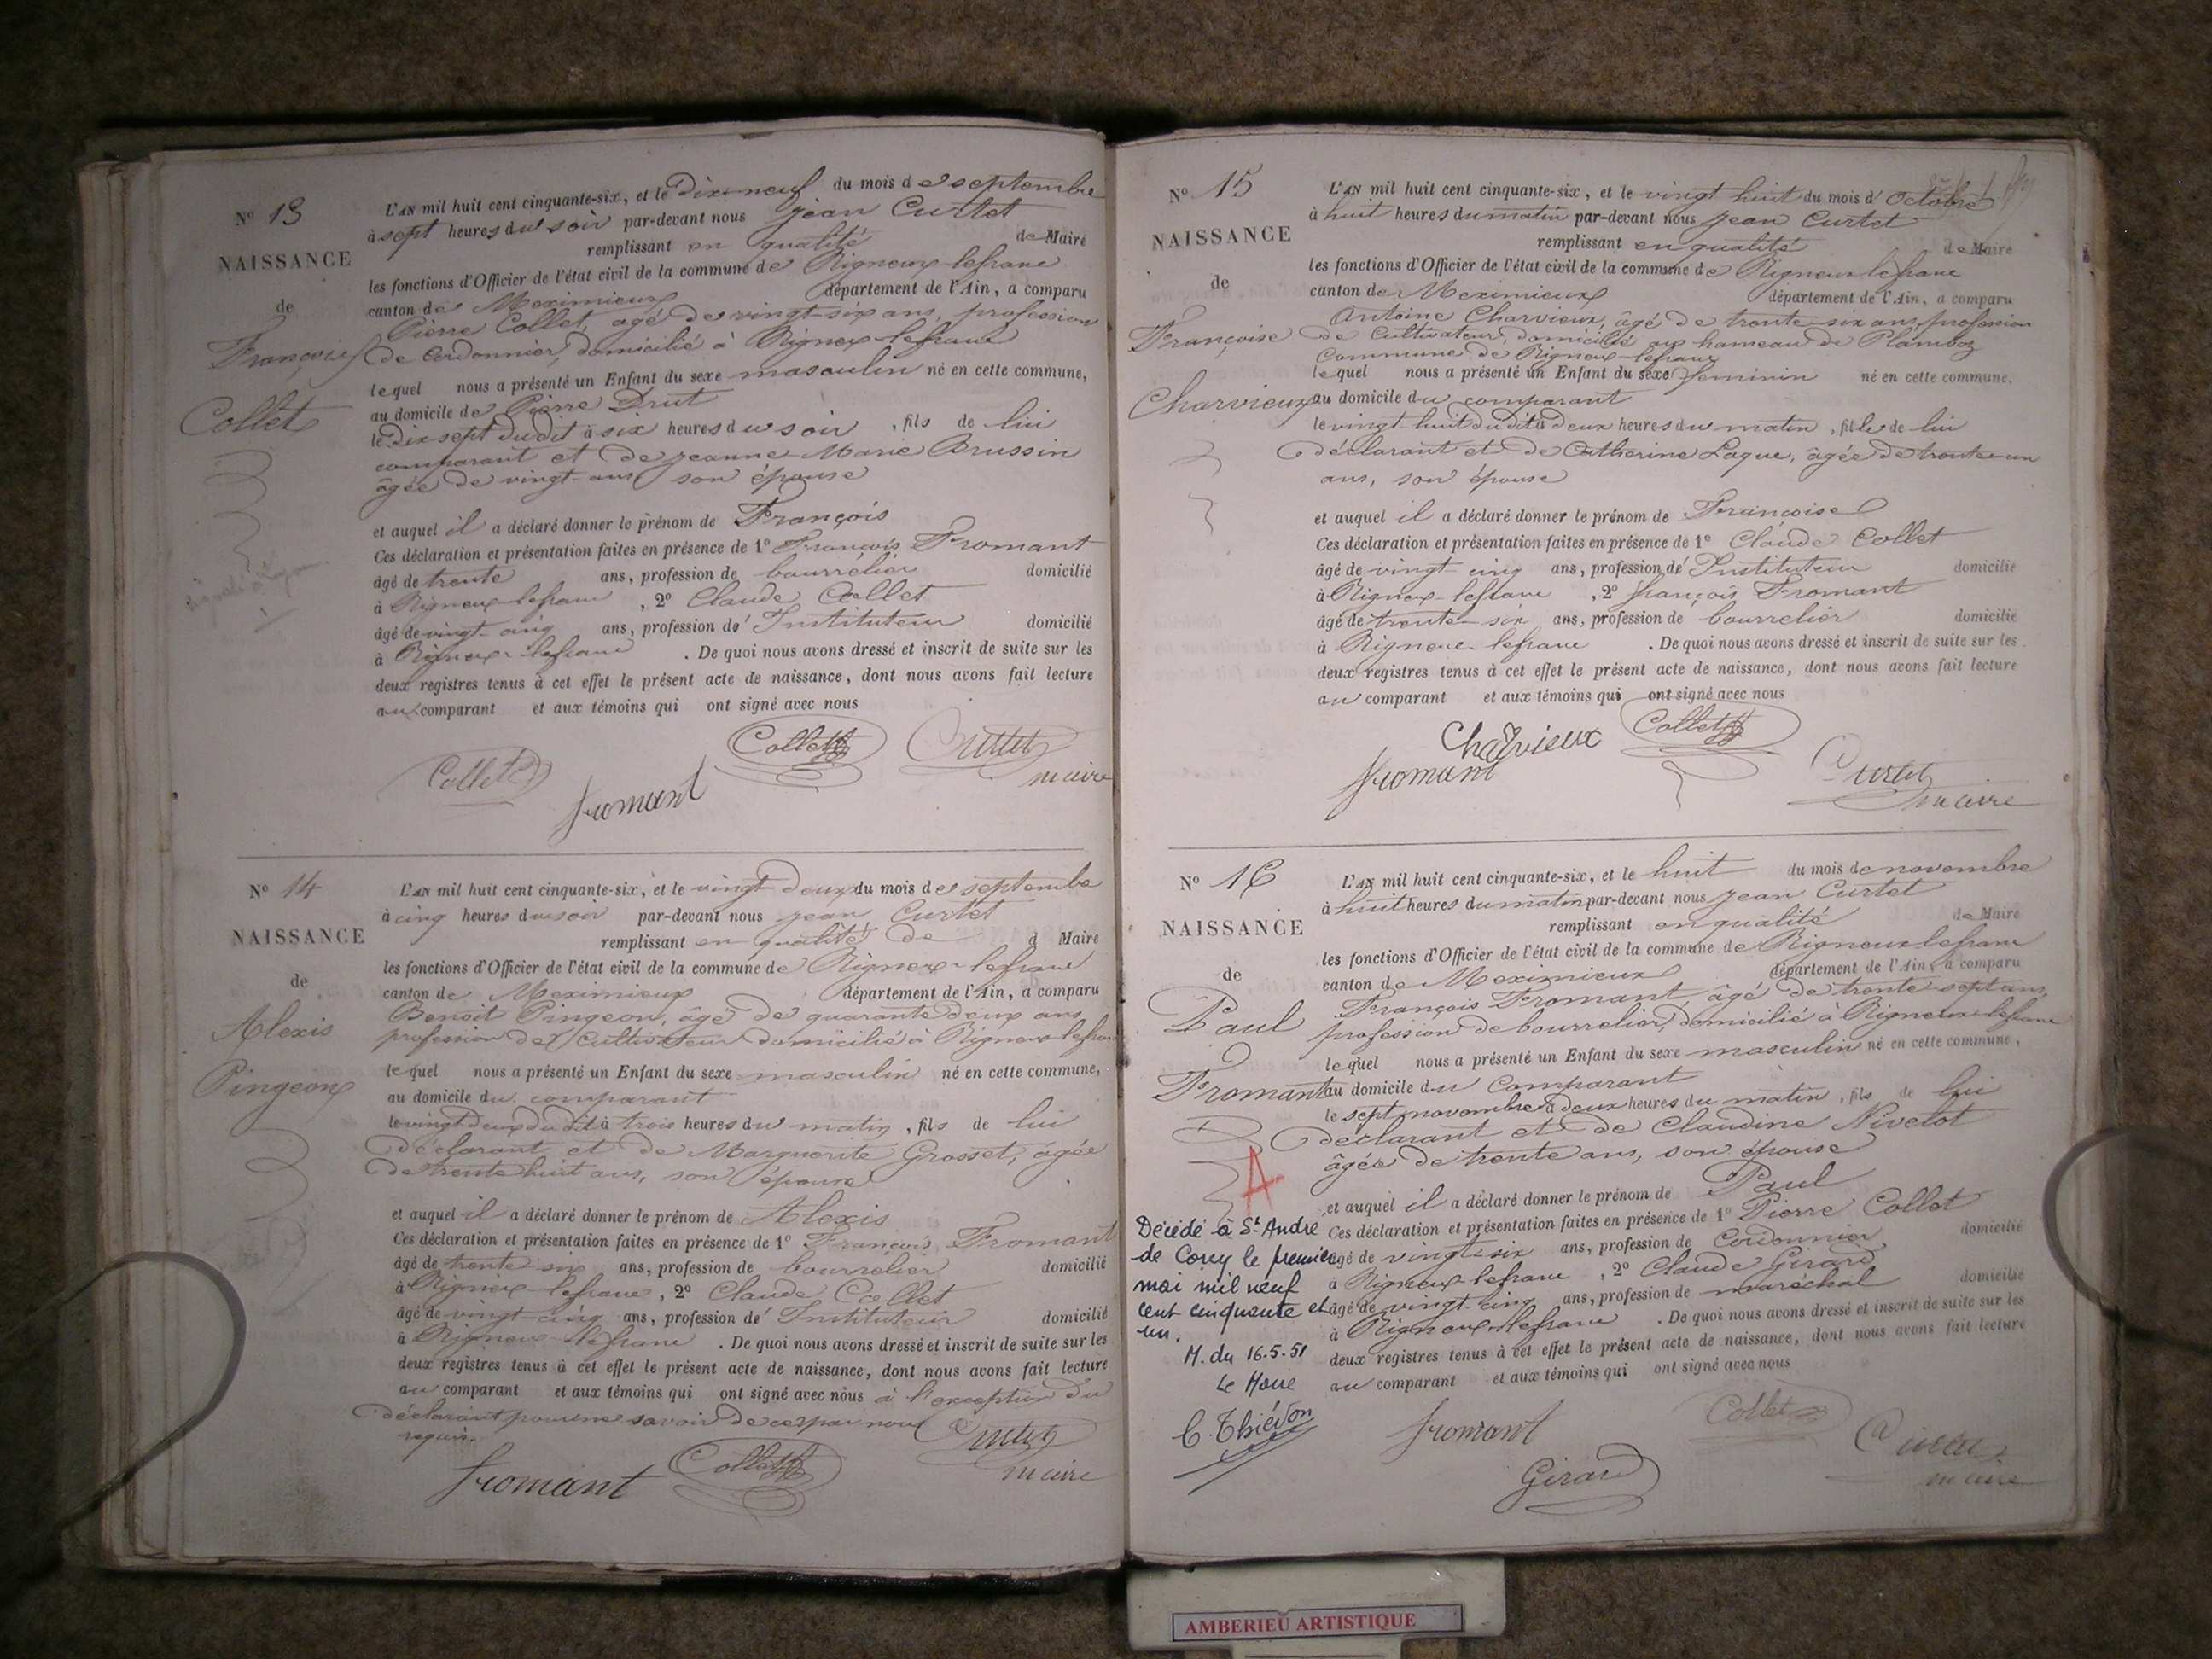 N° 13
NAISSANCE
de
François
Collet
L'AN mil huit cent cinquante-six, et le Dix-neuf du mois de septembre
à sept heures du soir par-devant nous Jean Curtet
remplissant en qualité de Maire
les fonctions d'Officier de l'état civil de la commune de Rigneux-lefranc
canton de Meximieux département de l'Ain, a comparu
Pierre Collet, âgé de vingt-six ans, profession
de Cordonnier, domicilié à Rigneux-lefranc
lequel nous a présenté un Enfant du sexe masculin né en cette commune,
au domicile de Pierre Drut
le Dix sept dudit à six heures du soir, fils de lui
comparant et de Jeanne Marie Brussin
âgée de vingt-ans son épouse
et auquel il a déclaré donner le prénom de François
Ces déclaration et présentation faites en présence de 1° François Fromant
âgé de trente ans, profession de bourrelier domicilié
à Rigneux-lefranc, 2° Claude Collet
âgé de vingt-cinq ans, profession d' Instituteur domicilié
à Rigneux-lefranc. De quoi nous avons dressé et inscrit de suite sur les
deux registres tenus à cet effet le présent acte de naissance, dont nous avons fait lecture
au comparant et aux témoins qui ont signé avec nous
Collet Fromant Collet Curtet
maire
N° 14
NAISSANCE
de
Alexis
Pingeon
L'AN mil huit cent cinquante-six, et le vingt deux du mois de septembre
à cinq heures du soir par-devant nous Jean Curtet
remplissant en qualité de d Maire
les fonctions d'Officier de l'état civil de la commune de Rigneux-lefranc
canton de Meximieux département de l'Ain, a comparu
Benoît Pingeon, âgé de quarante deux ans
profession de Cultivateur domicilié à Rigneux-lefranc
lequel nous a présenté un Enfant du sexe masculin né en cette commune,
au domicile du comparant
le vingt deux dudit à trois heures du matin, fils de lui
déclarant et de Marguerite Grosset, âgée
de trente huit ans, son épouse
et auquel il a déclaré donner le prénom de Alexis
Ces déclaration et présentation faites en présence de 1° François Fromant
âgé de trente six ans, profession de bourrelier domicilié
à Rigneux lefranc, 2° Claude Collet
âgé de vingt-cinq ans, profession d' Instituteur domicilié
à Rigneux-lefranc. De quoi nous avons dressé et inscrit de suite sur les
deux registres tenus à cet effet le présent acte de naissance, dont nous avons fait lecture
au comparant et aux témoins qui ont signé avec nous à l'exception du
déclarant pour ne savoir de ce par nous
requis.
Fromant Collet Curtet
maire
N° 15
NAISSANCE
de
Françoise
Charvieux
L'AN mil huit cent cinquante-six, et le vingt huit du mois d'Octobre
à huit heures du matin par-devant nous Jean Curtet
remplissant en qualité de Maire
les fonctions d'Officier de l'état civil de la commune de Rigneux lefranc
canton de Meximieux département de l'Ain, a comparu
Antoine Charvieux, âgé de trente six ans, profession
de Cultivateur, domicilié au hameau de Plamboz
Commune de Rigneux-lefranc
lequel nous a présenté un Enfant du sexe feminin né en cette commune,
au domicile du comparant
le vingt-huit dudit à deux heures du matin, fille de lui
déclarant et de Catherine Laque, âgée de trente-un
ans, son épouse
et auquel il a déclaré donner le prénom de Françoise
Ces déclaration et présentation faites en présence de 1° Claude Collet
âgé de vingt-cinq ans, profession d' Instituteur domicilié
à Rigneux-lefranc, 2° François Fromant
âgé de trente-six ans, profession de bourrelier domicilié
à Rigneux-lefranc. De quoi nous avons dressé et inscrit de suite sur les
deux registres tenus à cet effet le présent acte de naissance, dont nous avons fait lecture
au comparant et aux témoins qui ont signé avec nous
Charvieux Collet
Fromant Curtet
maire
N° 16
NAISSANCE
de
Paul
Fromant
A
Décédé à St André
de Corcy le premier
mai mil neuf
cent cinquante et
un.
M. du 16.5.51
Le Maire
C. Thiévon
L'AN mil huit cent cinquante-six, et le huit du mois de novembre
à huit heures du matin par-devant nous Jean Curtet
remplissant en qualité de Maire
les fonctions d'Officier de l'état civil de la commune de Rigneux-lefranc
canton de Meximieux département de l'Ain, a comparu
François Fromant, âgé de trente-sept ans,
profession de bourrelier, domicilié à Rigneux-lefranc
lequel nous a présenté un Enfant du sexe masculin né en cette commune,
au domicile du Comparant
le sept novembre à deux heures du matin, fils de lui
déclarant et de Claudine Nivelot
âgée de trente ans, son épouse
et auquel il a déclaré donner le prénom de Paul
Ces déclaration et présentation faites en présence de 1° Pierre Collet
âgé de vingt-six ans, profession de Cordonnier domicilié
à Rigneux-lefranc, 2° Claude Girard
âgé de vingt-cinq ans, profession de maréchal domicilié
à Rigneux-lefranc. De quoi nous avons dressé et inscrit de suite sur les
deux registres tenus à cet effet le présent acte de naissance, dont nous avons fait lecture
au comparant et aux témoins qui ont signé avec nous
Fromant Collet
Girard Curtet
maire
AMBERIEU ARTISTIQUE